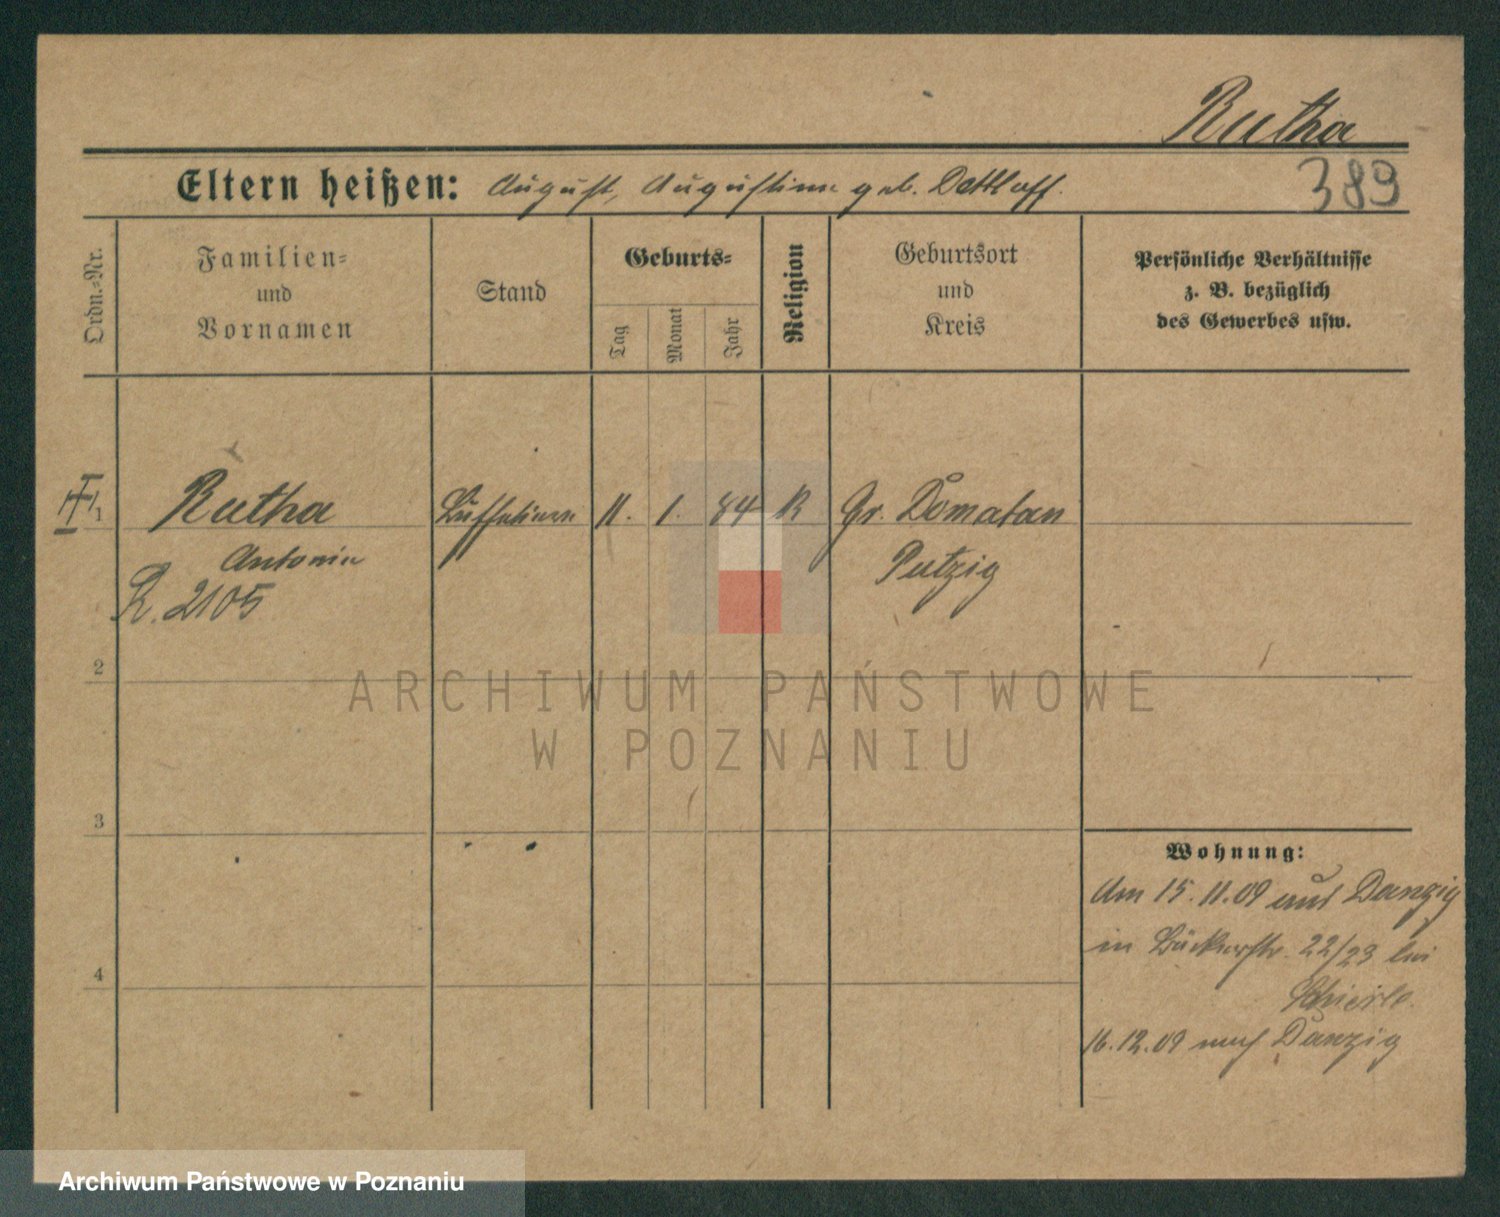 Rutha
389
Eltern heißen: August, Augustine geb. Dettlaff.
Ordn.-Nr.
Familien-
und
Vornamen
Stand
Geburts-
Tag
Monat
Jahr
Religion
Geburtsort
und
Kreis
Persönliche Verhältnisse
z. B. bezüglich
des Gewerbes usw.
1 Rutha Büffetiere 11. 1. 84 K Gr. Domatau
Antonie Putzig
R. 2105
2
ARCHIWUM PAŃSTWOWE
W POZNANIU
3
Wohnung:
Am 15.11.09 aus Danzig
in Bäckerstr. 22/23 bei
4
16.12.09 nach Danzig
Archiwum Państwowe w Poznaniu